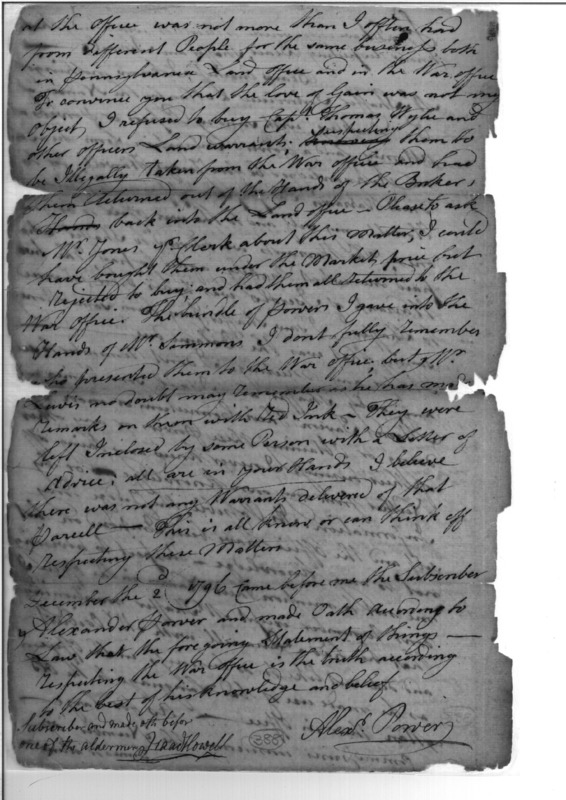 at the office was not more than I often had
from Different People for the same business both
in Pennsylvania Land office and in the War office
To convince you that the love of Gain was not my
object, I refused to buy Capt. Thomas Wylie and
other officers Land warrants. respecting them to
be Illegally taken from the War office and had
them returned out of the Hands of the Brokers
back into the Land office — Please to ask
Mr. Jones ye Clerk about this Matter, I could
have bought them under the Market price but
rejected to buy and had them all returned to the
War office. The bundle of Powers I gave into the
Hands of Mr. Simmons I dont fully remember
who presented them to the War office, but Mr.
Lewis no doubt may remember as he has made
remarks on them with Red Ink — They were
left Inclosed by some Person with a Letter of
Advice, all are in your Hands I believe
there was not any Warrants delivered of that
Parcell — This is all I know or can think off
respecting these Matters
December the 2d 1796 Came before me the Subscriber
Alexander Power and made Oath according to
Law that the foregoing Statement of things —
respecting the War office is the truth according
to the best of his knowledge and belief
Subscribed and made oth before
one of the aldermen Isaac Howell
Alexr. Power